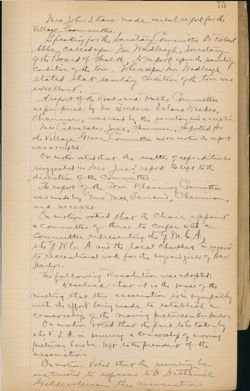 73
Mrs John I Kane made verbal report for the
Village Committee.
Speaking for the Sanitary Committee Dr Robert
Abbe called upon Mr Wadleigh, Secretary
of the Board of Health to report upon the sanitary
condition of the town.
stated that sanitary condition of the town was
excellent.
A report of the Roads and Paths Committee
Chairman, was read by the secretary and accepted.
Chairman, reported for
the Village Green Committee and on motion the report
was accepted.
On motion voted that the matter of expenditures
suggested in Mrs Jones' report be left to the
discretion of the Committee.
The report of the Town Planning Committee
was made by Chairman,
and accepted.
On motion voted that the Chair appoint
a Committee of three to confer with a
Committee representing the Y. M. C. A.,
the Y. W. C. A. and the local churches in regard
to recreational work for the boys and girls of Bar
Harbor.
The following Resolution was adopted:
Resolved that it is the sense of the
meeting that this association is in sympathy
with the effort being made to establish a
censorship of the moving pictures in Bar Harbor.
On motion voted that the part to be taken by
the V. I. A. in securing a censorship of moving
pictures be left to the president of the
association.
On motion voted that the secretary be
instructed to express to
the association's